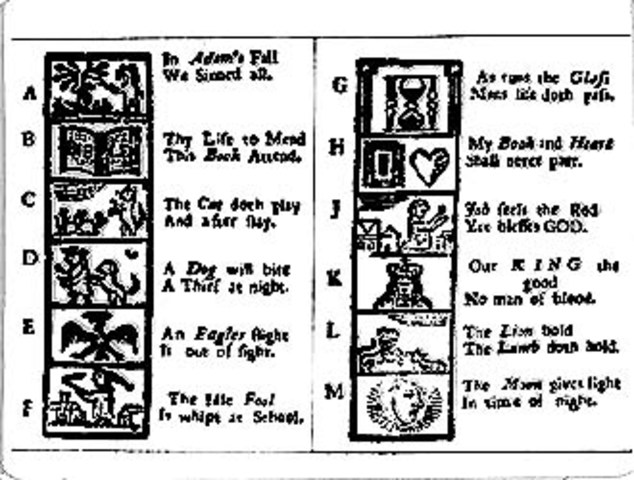 A
In Adam's Fall
We Sinned all.
B
Thy Life to Mend
This Book Attend.
C
The Cat doth play
And after slay.
D
A Dog will bite
A Thief at night.
E
An Eagles flight
Is out of sight.
F
The Idle Fool
Is whipt at School.
G
As runs the Glass
Mans life doth pass.
H
My Book and Heart
Shall never part.
J
Job feels the Rod
Yet blesses GOD.
K
Our KING the
good
No man of blood.
L
The Lion bold
The Lamb doth hold.
M
The Moon gives light
In time of night.